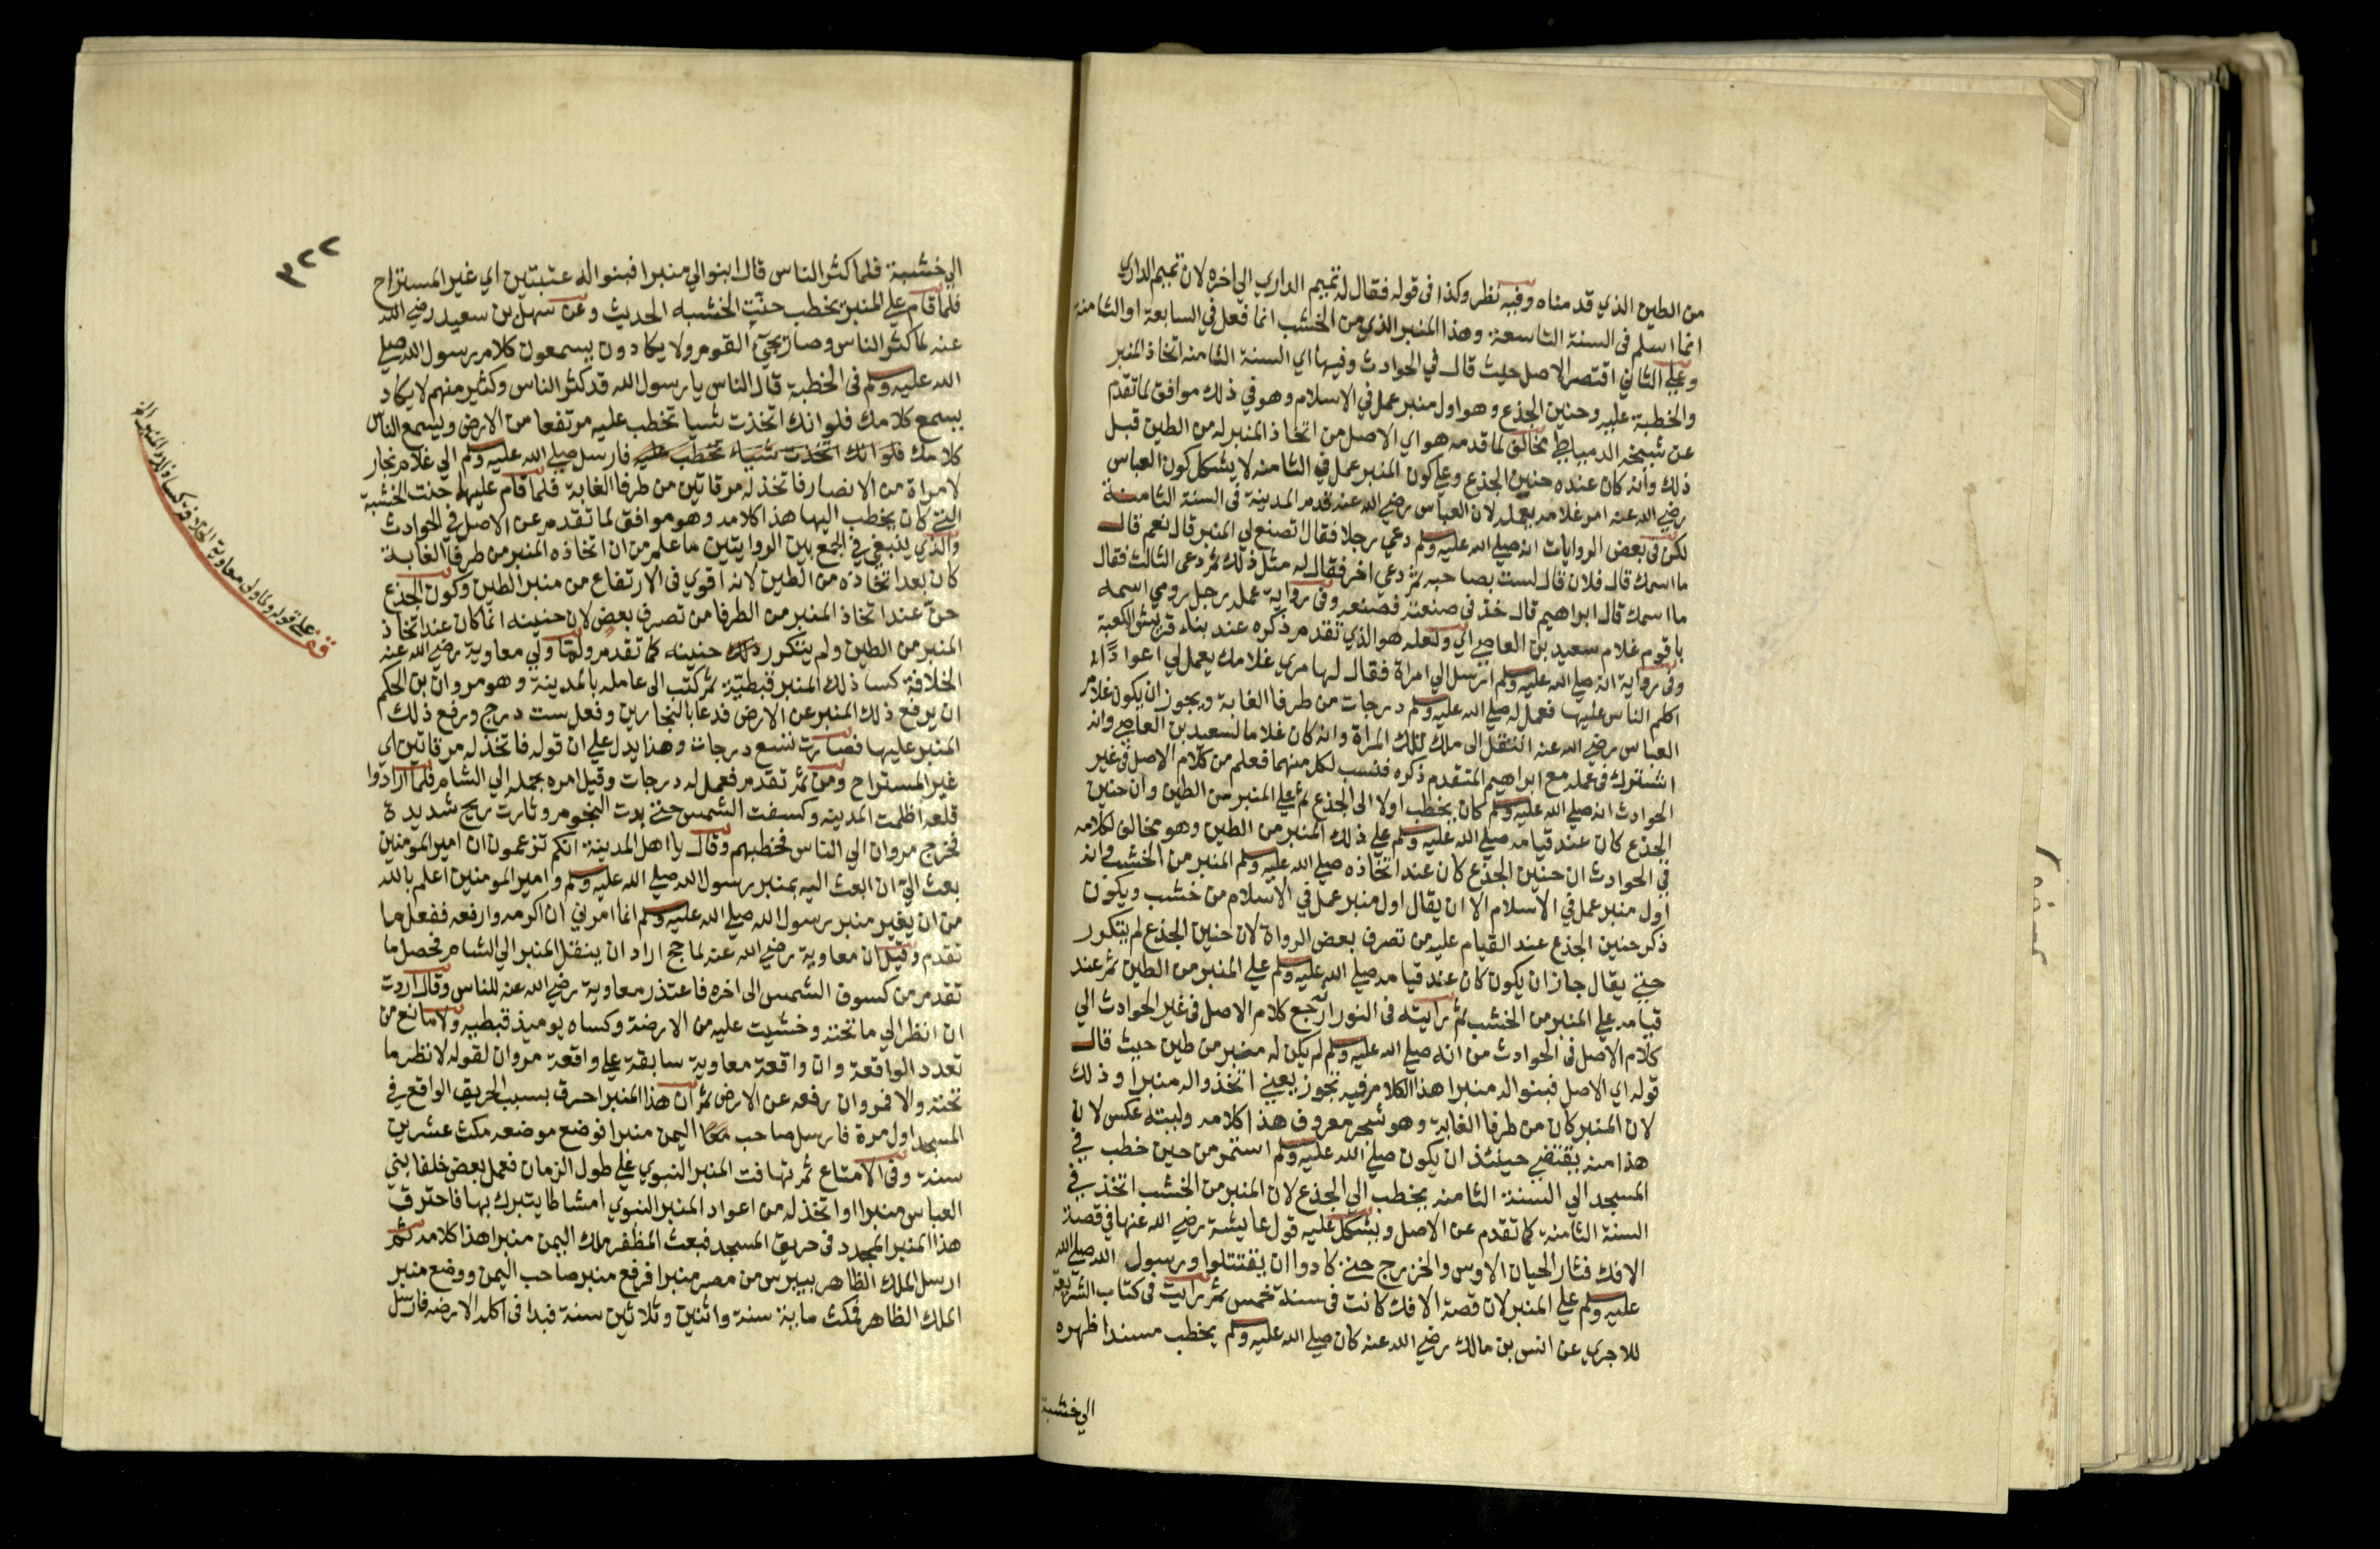 من الطين الذي قدمناه وفيه نظر وكذا في قوله فقال له تميم الداري الي اخره لان تميم الداري
انما اسلم في السنة التاسعة وهذا المنبر الذي من الخشب انما فعل في السابعة او الثامنة
وعلي الثاني اقتصر الاصل حيث قال في الحوادث وفيها اي السنة الثامنه اتخاذ المنبر
والخطبة عليه وحنين الجذع وهو اول منبر عمل في الاسلام وهو في ذلك موافق لما تقدم
عن شيخه الدمياطي مخالف لما قدمه هو اي الاصل من اتخاذ المنبر له من الطين قبل
ذلك وانه كان عنده حنين الجذع وعلي كون المنبر عمل في الثامنه لا يشكل كون العباس
رضي الله عنه امر غلامه بعمله لان العباس رضي الله عنه قدم المدينة في السنة الثامنة
لكن في بعض الروايات انه صلي الله عليه وسلم دعي رجلا فقال اتصنع لي المنبر قال نعم قال
ما اسمك قال فلان قال لست بصاحبه ثم دعي اخر فقال له مثل ذلك ثم دعي الثالث فقال
ما اسمك قال ابراهيم قال خذ في صنعته فصنعه وفي رواية عمله رجل رومي اسمه
باقوم غلام سعيد بن العاصي اي ولعله هو الذي تقدم ذكره عند بناء قريش الكعبة
وفي رواية انه صلي الله عليه وسلم ارسل الي امراة فقال لها مري غلامك يعمل لي اعوادا
اكلم الناس عليها فعمل له صلي الله عليه وسلم درجات من طرفا الغابة ويجوز ان يكون غلام
العباس رضي الله عنه انتقل الي ملك تلك المراة وانه كان غلاما لسعيد بن العاصي وانه
اشترك في عمله مع ابراهيم المتقدم ذكره فنسب لكل منهما فعلم من كلام الاصل في غير
الحوادث انه صلي الله عليه وسلم كان يخطب اولا الي الجذع ثم علي المنبر من الطين وان حنين
الجذع كان عند قيامه صلي الله عليه وسلم علي ذلك المنبر من الطين وهو مخالف لكلامه
في الحوادث ان حنين الجذع كان عند اتخاذه صلي الله عليه وسلم المنبر من الخشب وانه
اول منبر عمل في الاسلام الا ان يقال اول منبر عمل في الاسلام من خشب ويكون
ذكر حنين الجذع عند القيام عليه من تصرف بعض الرواة لان حنين الجذع لم يتكرر
حتي يقال جاز ان يكون كان عند قيامه صلي الله عليه وسلم علي المنبر من الطين ثم عند
قيامه علي المنبر من الخشب ثم رايته في النور ارجع كلام الاصل في غير الحوادث الي
كلام الاصل في الحوادث من انه صلي الله عليه وسلم لم يكن له منبر من طين حيث قال
قوله اي الاصل فبنوا له منبرا هذا الكلام فيه تجوز يعني اتخذوا له منبرا وذلك
لان المنبر كان من طرفا الغابة وهو شجر معروف هذا كلامه وليته عكس لان
هذا منه يقتضي حينئذ ان يكون صلي الله عليه وسلم استمر من حين خطب في
المسجد الي السنة الثامنه يخطب الي الجذع لان المنبر من الخشب اتخذ في
السنة الثامنة كما تقدم عن الاصل ويشكل عليه قول عايشة رضي الله عنها في قصة
الافك فثار الحيان الاوس والخزرج حتي كادوا ان يقتتلوا ورسول الله صلي الله
عليه وسلم علي المنبر لان قصة الافك كانت في سنة خمس ثم رايت في كتاب الشريعة
للاجري عن انس بن مالك رضي الله عنه كان صلي الله عليه وسلم يخطب مسندا ظهره
الي خشبة
٣٢٢
الي خشبة فلما كثر الناس قال ابنوا لي منبرا فبنوا له عتبتين اي غير المستراح
فلما قام علي المنبر يخطب حنت الخشبه الحديث وعن سهل بن سعيد رضي الله
عنه لما كثر الناس وصار يجئ القوم ولا يكادون يسمعون كلام رسول الله صلي
الله عليه وسلم في الخطبة قال الناس يا رسول الله قد كثر الناس وكثير منهم لا يكاد
يسمع كلامك فلو انك اتخذت شيا تخطب عليه مرتفعا من الارض ويسمع الناس
كلامك فلو انك اتخذت شياء تخطب عليه فارسل صلي الله عليه وسلم الي غلام نجار
لامراة من الانصار فاتخذ له مرقاتين من طرفا الغابة فلما قام عليها حنت الخشبة
التي كان يخطب اليها هذا كلامه وهو موافق لما تقدم عن الاصل في الحوادث
والذي ينبغي في الجمع بين الروايتين ما علم من ان اتخاذه المنبر من طرفا الغابة
كان بعد اتخاذه من الطين لانه اقوي في الارتفاع من منبر الطين وكون الجذع
حن عند اتخاذ المنبر من الطرفا من تصرف بعض لان حنينه انما كان عند اتخاذ
المنبر من الطين ولم يتكرر ذلك حنينه كما تقدم ولما ولي معاوية رضي الله عنه
الخلافة كسا ذلك المنبر قبطية ثم كتب الي عامله بالمدينة وهو مروان بن الحكم
ان يرفع ذلك المنبر عن الارض فدعا بالنجارين وفعل ست درج ورفع ذلك
المنبر عليها فصارت تسع درجات وهذا يدل علي ان قوله فاتخذ له مرقاتين اي
غير المستراح ومن ثم تقدم فعمل له درجات وقيل امره بحمله الي الشام فلما ارادوا
قلعه اظلمت المدينه وكسفت الشمس حتي بدت النجوم وثارت ريح شديدة
فخرج مروان الي الناس فخطبهم وقال يا اهل المدينة انكم تزعمون ان امير المومنين
بعث الي ان ابعث اليه بمنبر رسول الله صلي الله عليه وسلم وامير المومنين اعلم بالله
من ان يغير منبر رسول الله صلي الله عليه وسلم انما امرني ان اكرمه وارفعه ففعل ما
تقدم وقيل ان معاوية رضي الله عنه لما حج اراد ان ينقل المنبر الي الشام فحصل ما
تقدم من كسوف الشمس الي اخره فاعتذر معاوية رضي الله عنه للناس وقال اردت
ان انظر الي ما تحته وخشيت عليه من الارضة وكساه يوميذ قبطيه ولا مانع من
تعدد الواقعة وان واقعة معاوية سابقة علي واقعة مروان لقوله لانظر ما
تحته والا فمروان رفعه عن الارض ثم ان هذا المنبر احرق بسبب الحريق الواقع في
المسجد اول مرة فارسل صاحب اليمن منبرا فوضع موضعه مكث عشرين
سنة وفي الامتاع ثم تهافت المنبر النبوي علي طول الزمان فعمل بعض خلفا بني
العباس منبرا واتخذ له من اعواد المنبر النبوي امشاطا يتبرك بها فاحترق
هذا المنبر المجدد في حريق المسجد فبعث المظفر ملك اليمن منبرا هذا كلامه ثم
ارسل الملك الظاهر بيبرس من مصر منبرا فرفع منبر صاحب اليمن ووضع منبر
الملك الظاهر فمكث ماية سنة واثنين وثلاثين سنة فبدا في اكله الارضه فارسل
قف علي قوله ولما ولي معاوية الخلافة كسا ذلك المنبر